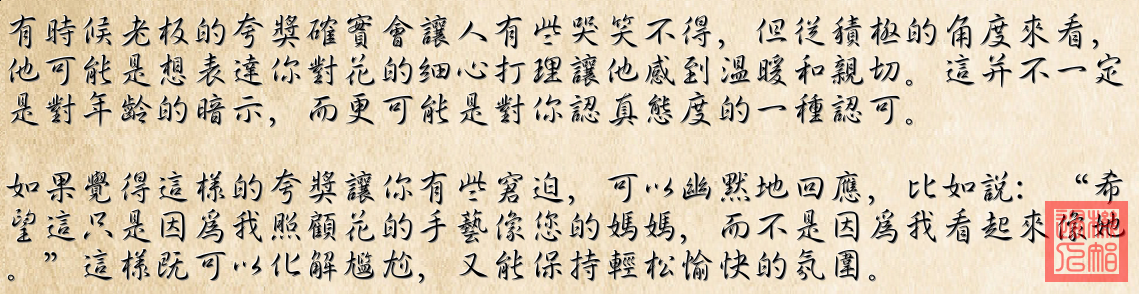 有時候老板的夸獎確實會讓人有些哭笑不得，但從積極的角度來看，
他可能是想表達你對花的细心打理讓他感到溫暖和親切。這并不一定
是對年齡的暗示，而更可能是對你認真態度的一種認可。
如果覺得這樣的夸獎讓你有些窘迫，可以幽默地回應，比如説：“希
望這只是因爲我照顧花的手藝像您的媽媽，而不是因爲我看起來像她
。”這樣既可以化解尷尬，又能保持輕松愉快的氛圍。